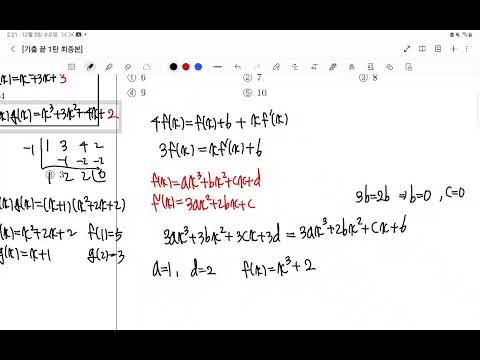 2:21 12월 3일 수요일
[기출 끝 1탄 최종본]
① 6 ② 7 ③ 8
④ 9 ⑤ 10
(x)=x²+3x+3
4
x)g(x)=x³+3x²+4x+2
-1 | 1 3 4 2
-1 -2 -2
1 2 2 0
(x)g(x)=(x+1)(x²+2x+2)
(x)=x²+2x+2 f(1)=5
g(x)=x+1 g(2)=3
4f(x)=f(x)+6+xf'(x)
3f(x)=xf'(x)+6
f(x)=ax³+bx²+cx+d
f'(x)=3ax²+2bx+c
3b=2b ⇒b=0 , c=0
3ax³+3bx²+3cx+3d=3ax³+2bx²+cx+6
a=1, d=2 f(x)=x³+2